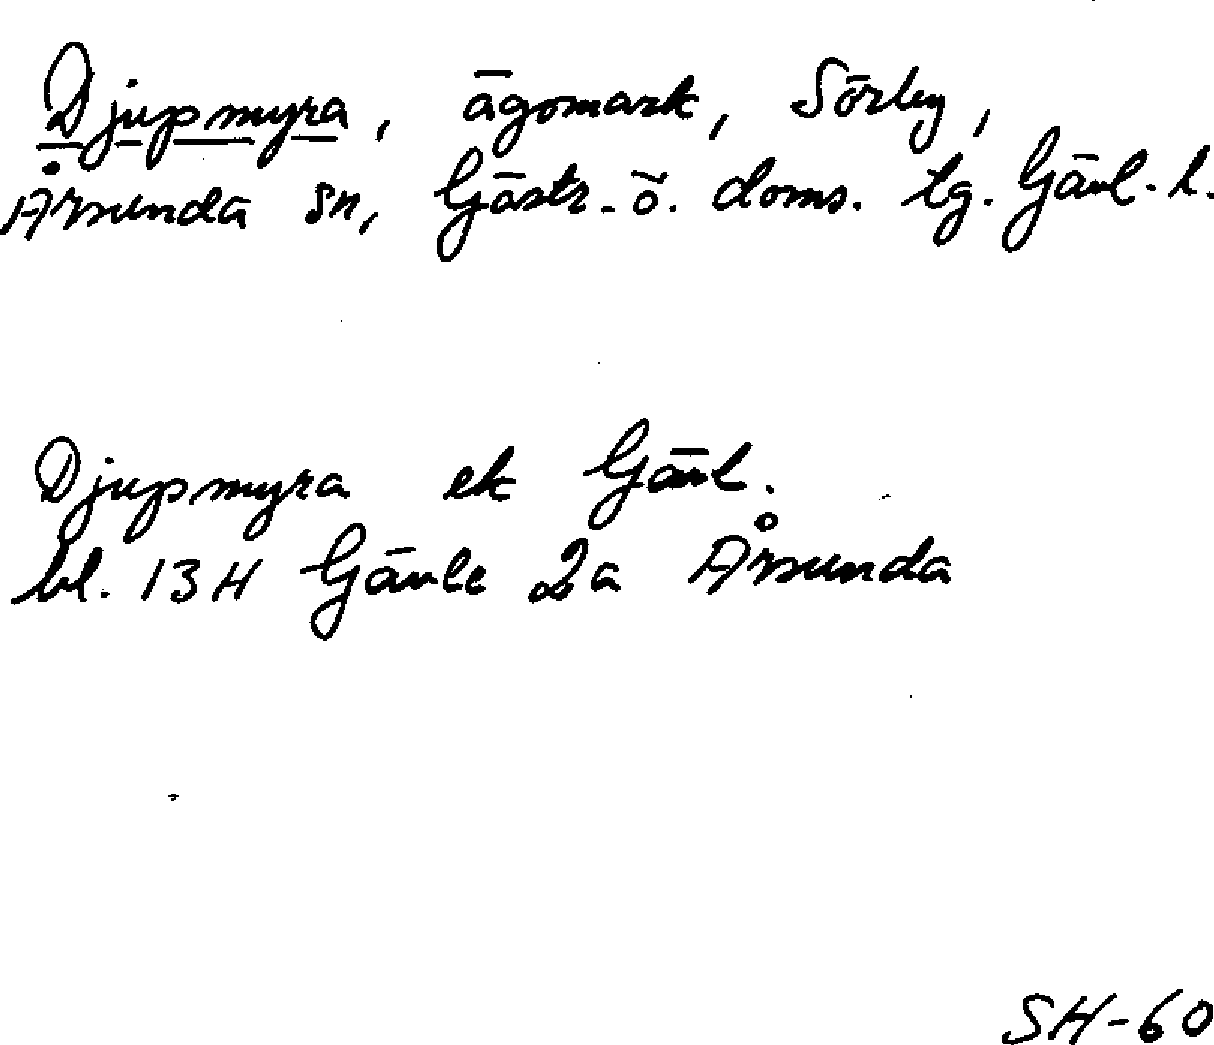 Djupmyra, ägomark, Sörby,
Årsunda sn, Gästr. ö. doms. tg. Gävl. l.
Djupmyra ek Gävl.
bl. 13H Gävle 2a Årsunda
SH-60